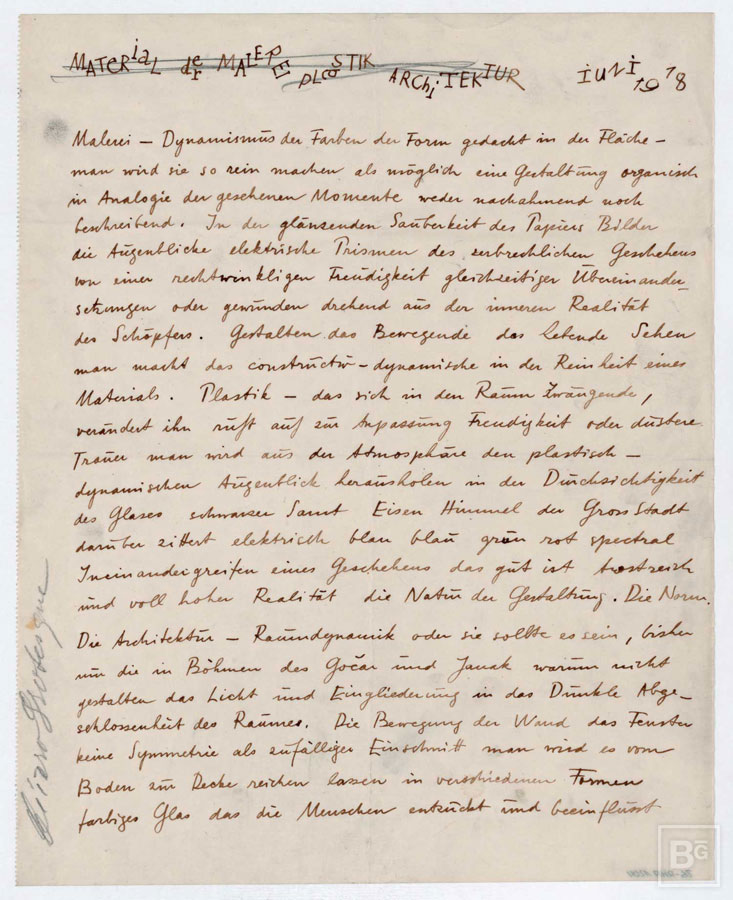 MATERiaL der MALEREI PLaSTIK ARChiTEKTUR iUNi 1918
Malerei – Dynamismus der Farben der Form gedacht in der Fläche –
man wird sie so rein machen als möglich eine Gestaltung organisch
in Analogie der gesehenen Momente weder nachahmend noch
beschreibend. In der glänzenden Sauberkeit des Papiers Bilder
die Augenblicke elektrische Prismen des zerbrechlichen Geschehens
von einer rechtwinkligen Freudigkeit gleichzeitiger Übereinander-
setzungen oder gewunden drehend aus der inneren Realität
des Schöpfers. Gestalten das Bewegende das lebende Sehen
man macht das constructiv-dynamische in der Reinheit eines
Materials. Plastik – das sich in den Raum Zwängende,
verändert ihn ruft auf zur Anpassung Freudigkeit oder düstere
Trauer man wird aus der Atmosphäre den plastisch –
dynamischen Augenblick herausholen in der Durchsichtigkeit
des Glases schwarzer Samt Eisen Himmel der Gross Stadt
darüber zittert elektrisch blau blau grün rot spectral
Ineinandergreifen eines Geschehens das gut ist trostreich
und voll hoher Realität die Natur der Gestaltung. Die Norm.
Die Architektur – Raumdynamik oder sie sollte es sein, bisher
nur die in Böhmen des Gočar und Janak warum nicht
gestalten das Licht und Eingliederung in das Dunkle Abge-
schlossenheit des Raumes. Die Bewegung der Wand das Fenster
keine Symmetrie als zufälliger Einschnitt man wird es vom
Boden zur Decke reichen lassen in verschiedenen Formen
farbiges Glas das die Menschen entzückt und beeinflusst
Grotesque
BG